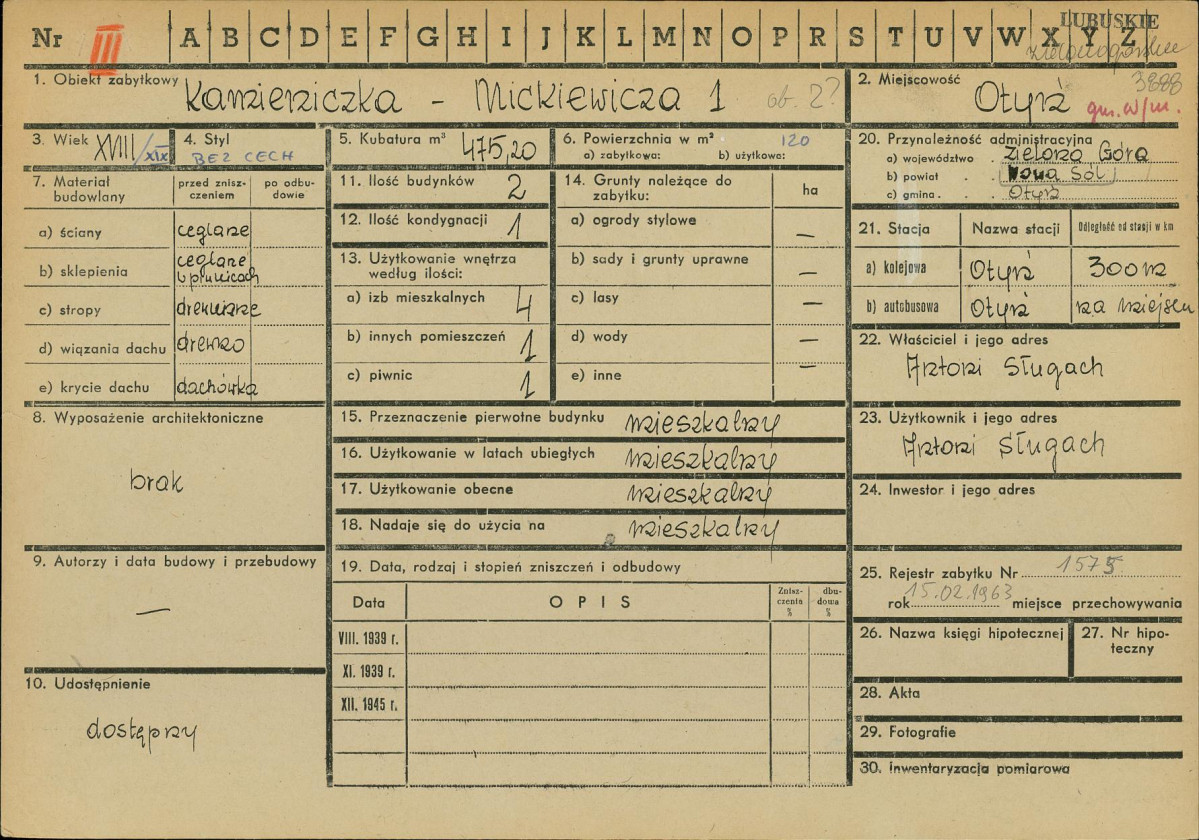 Nr III A B C D E F G H I J K L M N O P R S T U V W X Y Z
LUBUSKIE
zielonogórskie
1. Obiekt zabytkowy Kamieniczka - Mickiewicza 1 ob. 2?
2. Miejscowość 3888
Otyń gm. w/m.
3. Wiek XVIII/XIX
4. Styl
BEZ CECH
5. Kubatura m³ 475,20
6. Powierzchnia w m² 120
a) zabytkowa: b) użytkowa:
7. Materiał budowlany
przed zniszczeniem
po odbudowie
a) ściany ceglane
b) sklepienia ceglane
w piwnicach
c) stropy drewniane
d) wiązania dachu drewno
e) krycie dachu dachówka
8. Wyposażenie architektoniczne
brak
9. Autorzy i data budowy i przebudowy
—
10. Udostępnienie
dostępny
11. Ilość budynków 2
12. Ilość kondygnacji 1
13. Użytkowanie wnętrza
według ilości:
a) izb mieszkalnych 4
b) innych pomieszczeń 1
c) piwnic 1
14. Grunty należące do
zabytku: ha
a) ogrody stylowe —
b) sady i grunty uprawne —
c) lasy —
d) wody —
e) inne —
15. Przeznaczenie pierwotne budynku mieszkalny
16. Użytkowanie w latach ubiegłych mieszkalny
17. Użytkowanie obecne mieszkalny
18. Nadaje się do użycia na mieszkalny
19. Data, rodzaj i stopień zniszczeń i odbudowy
Data OPIS Zniszczenia % dbudowa %
VIII. 1939 r.
XI. 1939 r.
XII. 1945 r.
20. Przynależność administracyjna
a) województwo . Zielona Góra
b) powiat . . Nowa Sól
c) gmina . . . Otyń
21. Stacja Nazwa stacji Odległość od stacji w km
a) kolejowa Otyń 300 m
b) autobusowa Otyń na miejscu
22. Właściciel i jego adres
Antoni Sługach
23. Użytkownik i jego adres
Antoni Sługach
24. Inwestor i jego adres
25. Rejestr zabytku Nr 1575
rok 15.02.1963 miejsce przechowywania
26. Nazwa księgi hipotecznej
27. Nr hipoteczny
28. Akta
29. Fotografie
30. Inwentaryzacja pomiarowa